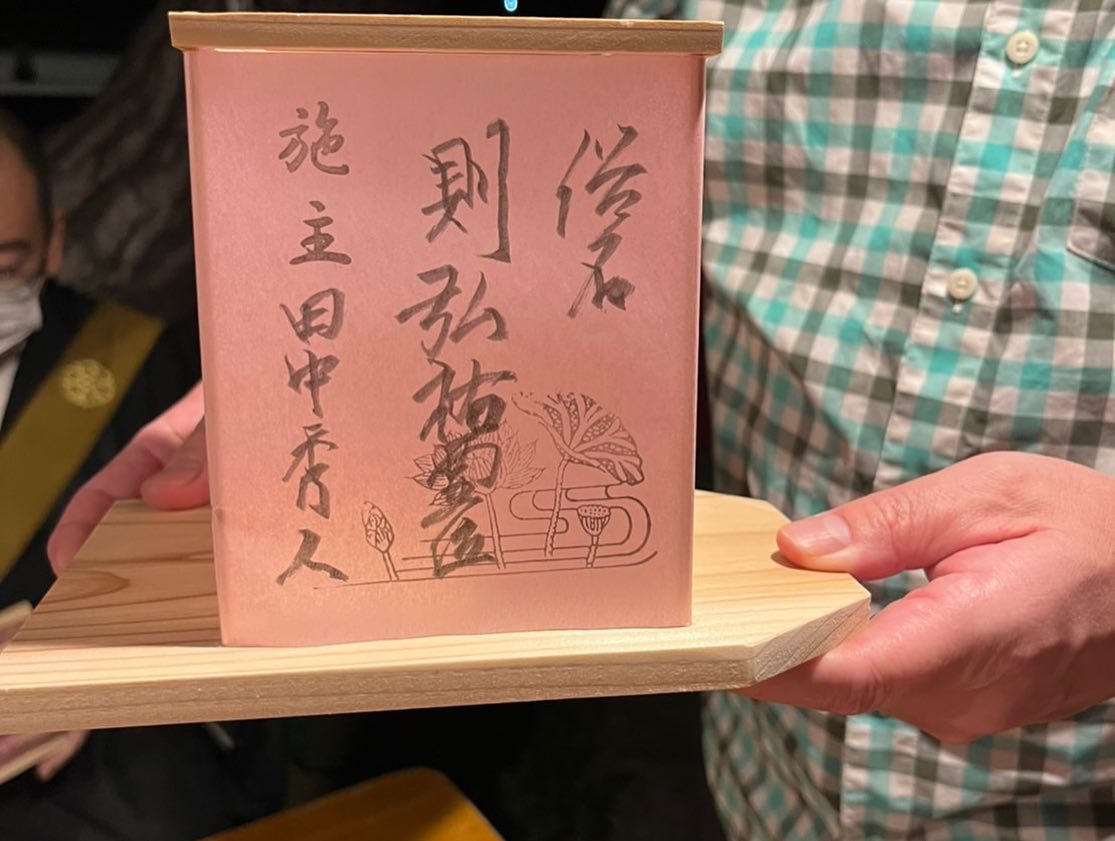 俗名
則弘祐
施主 田中秀人